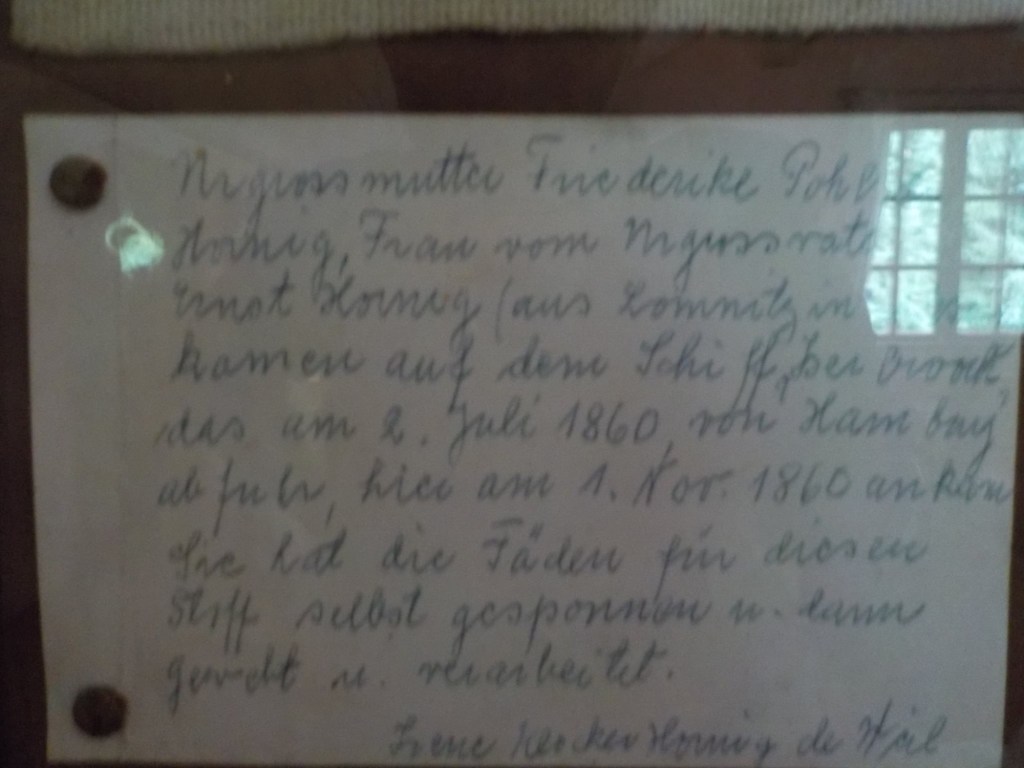 Urgrossmutter Friederike Pohl
Hornig, Frau vom Urgrossvater
Ernst Hornig (aus Lomnitz in
kamen auf dem Schiff,
das am 2. Juli 1860, von Hamburg
abfuhr, hier am 1. Nov. 1860 ankam
Sie hat die Fäden für diesen
Stoff selbst gesponnen u. dann
gewebt u. verarbeitet.
Irene Klocker Hornig de Weil